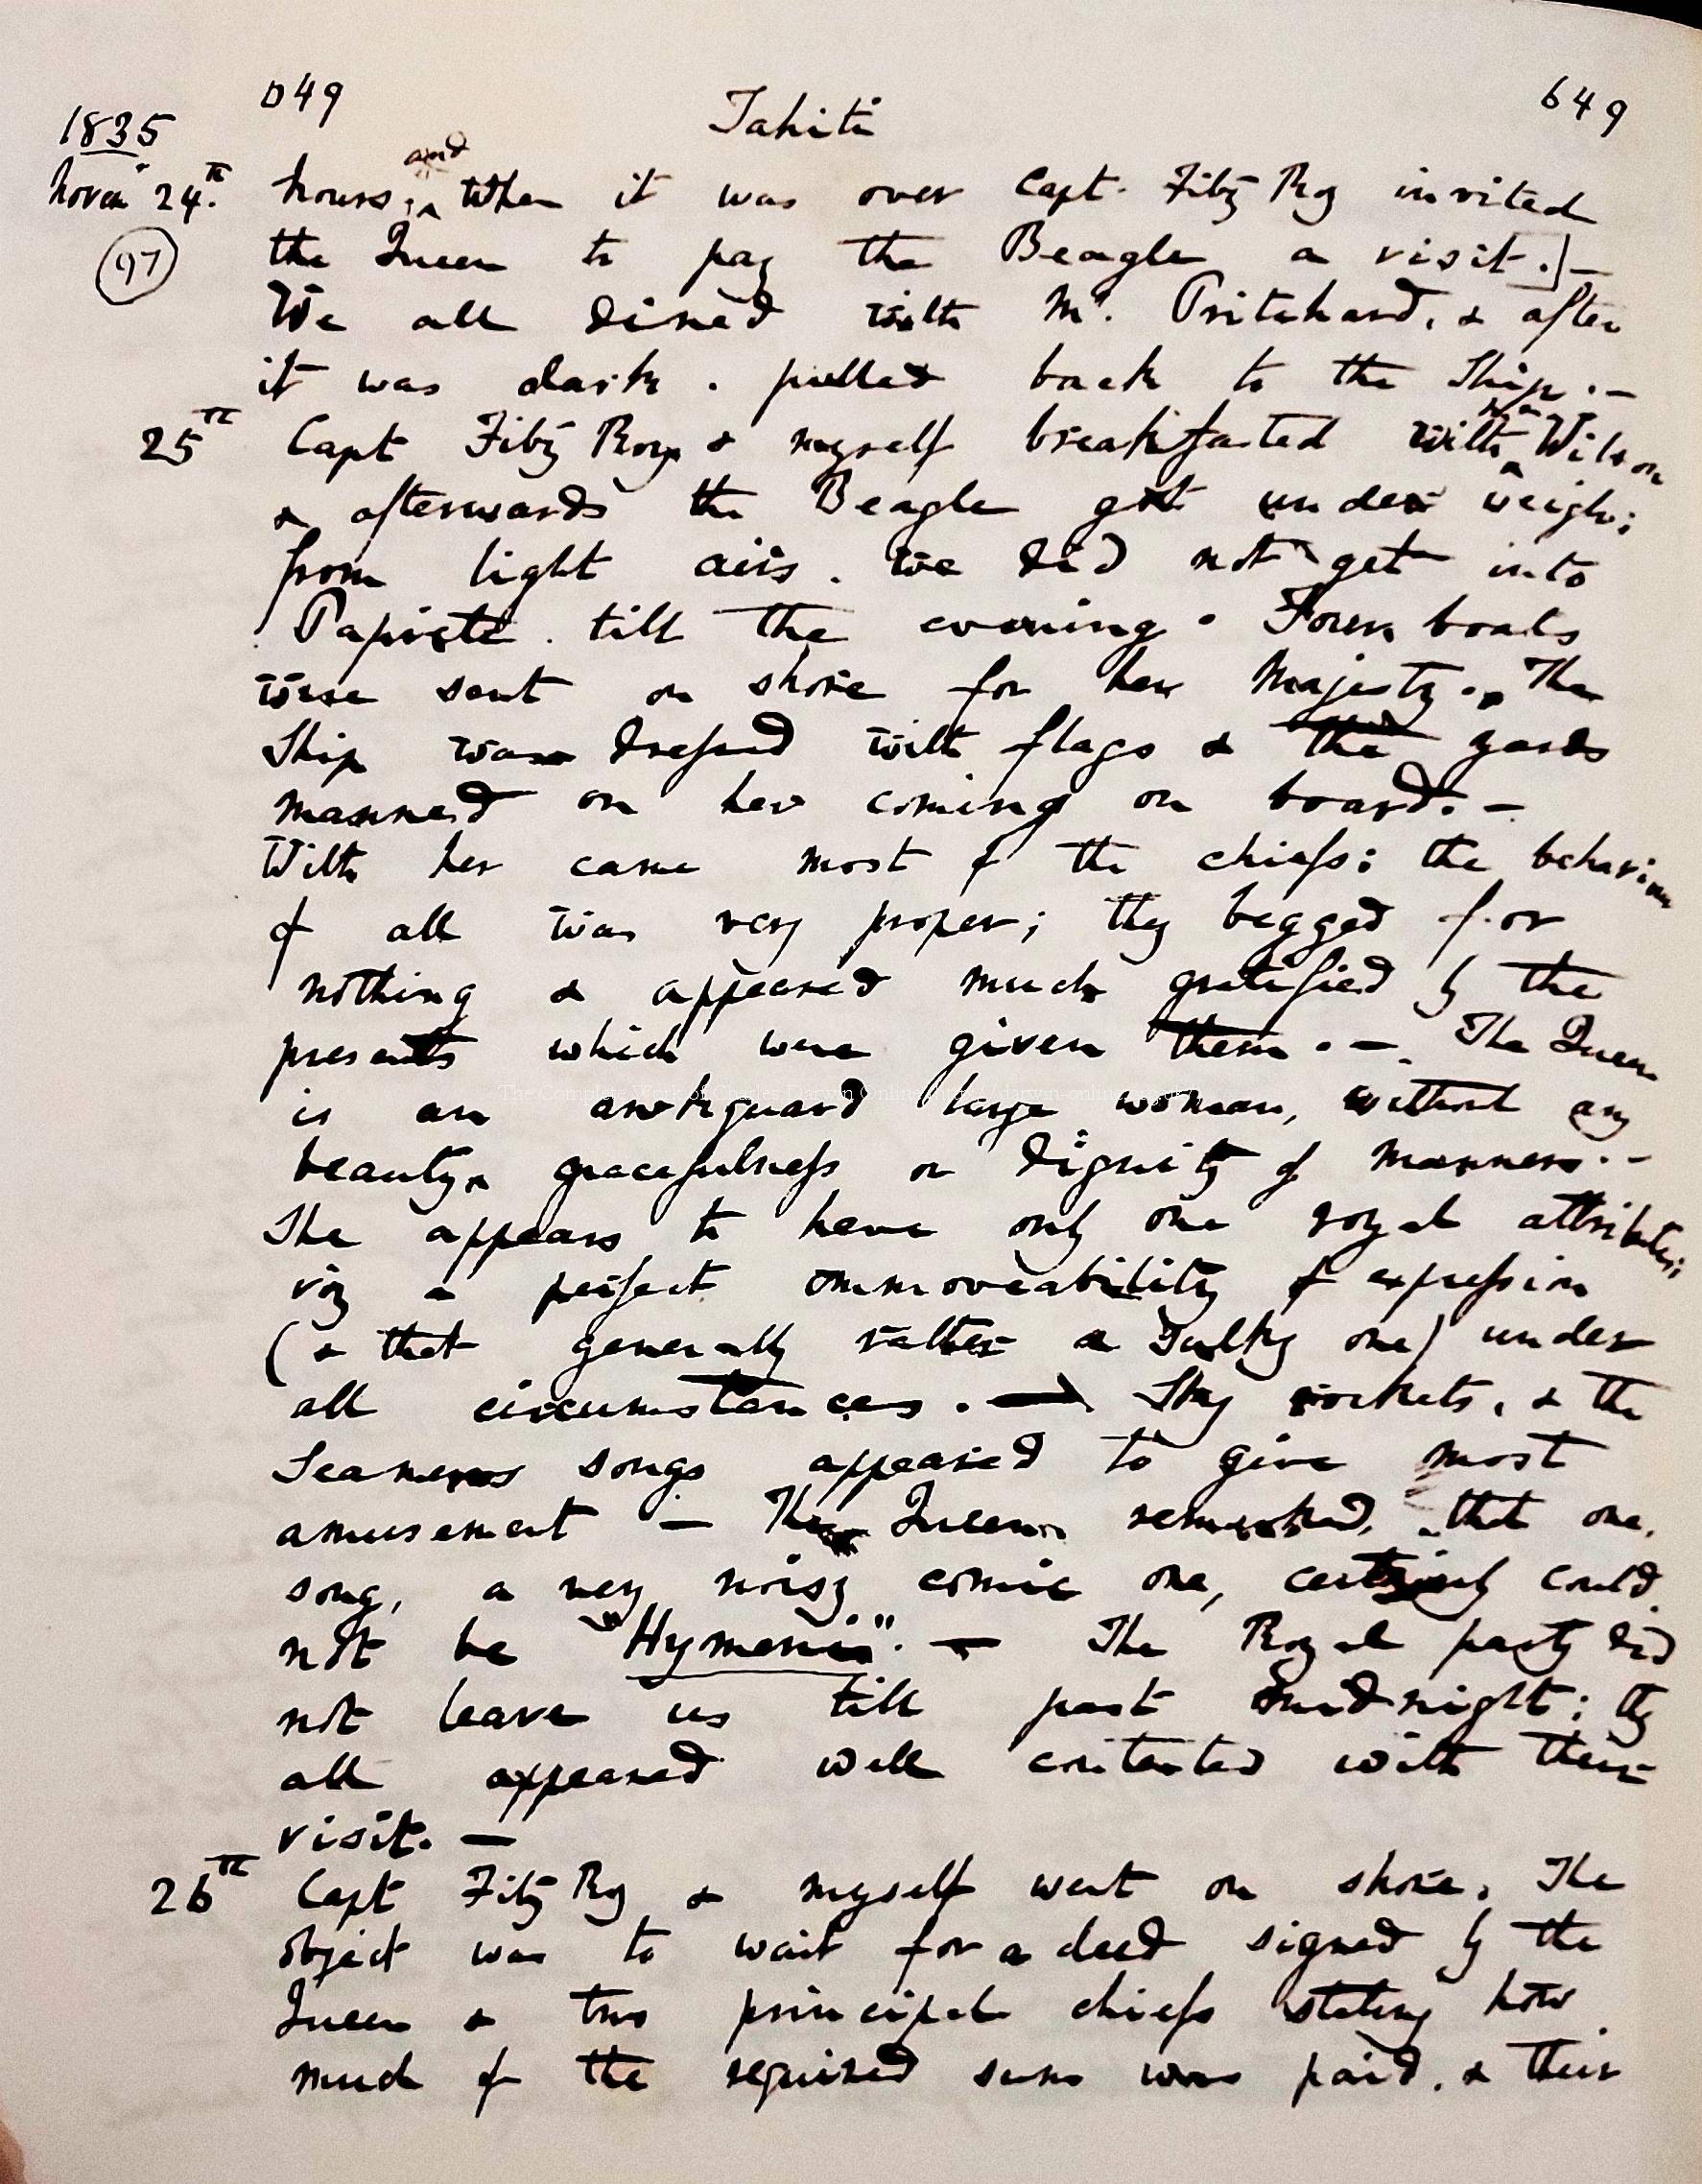 649 Tahiti 649
1835
Novem 24th. hours; and When it was over Capt. Fitz Roy invited
(97) the Queen to pay the Beagle a visit.]—
We all dined with Mr. Pritchard, & after
it was dark. pulled back to the Ship.—
25th Capt Fitz Roy & myself breakfasted with Mr Wilson
& afterwards the Beagle got under weigh;
from light airs. we did not get into
Papiete. till the evening. Four boats
were sent on shore for her Majesty. The
Ship was dressed with flags & the yards
manned on her coming on board.—
With her came most of the chiefs: the behaviour
of all was very proper; they begged for
nothing & appeared much gratified by the
presents which were given them.—. The Queen
is an awkguard large woman, without any
beauty, gracefulness or dignity of manners.—
She appears to have only one royal attribute;
viz a perfect immoveability of expression
(& that generally rather a sulky one) under
all circumstances. — Sky rockets, & the
Seamens songs appeared to give most
amusement — The Queen remarked, that one,
song, a very noisy comic one, certainly could
not be "Hymeni". — The Royal party did
not leave us till past midnight; they
all appeared well contented with their
visit. —
26th Capt Fitz Roy & myself went on shore. The
object was to wait for a deed signed by the
Queen & two principal chiefs stating how
much of the required sum was paid, & their